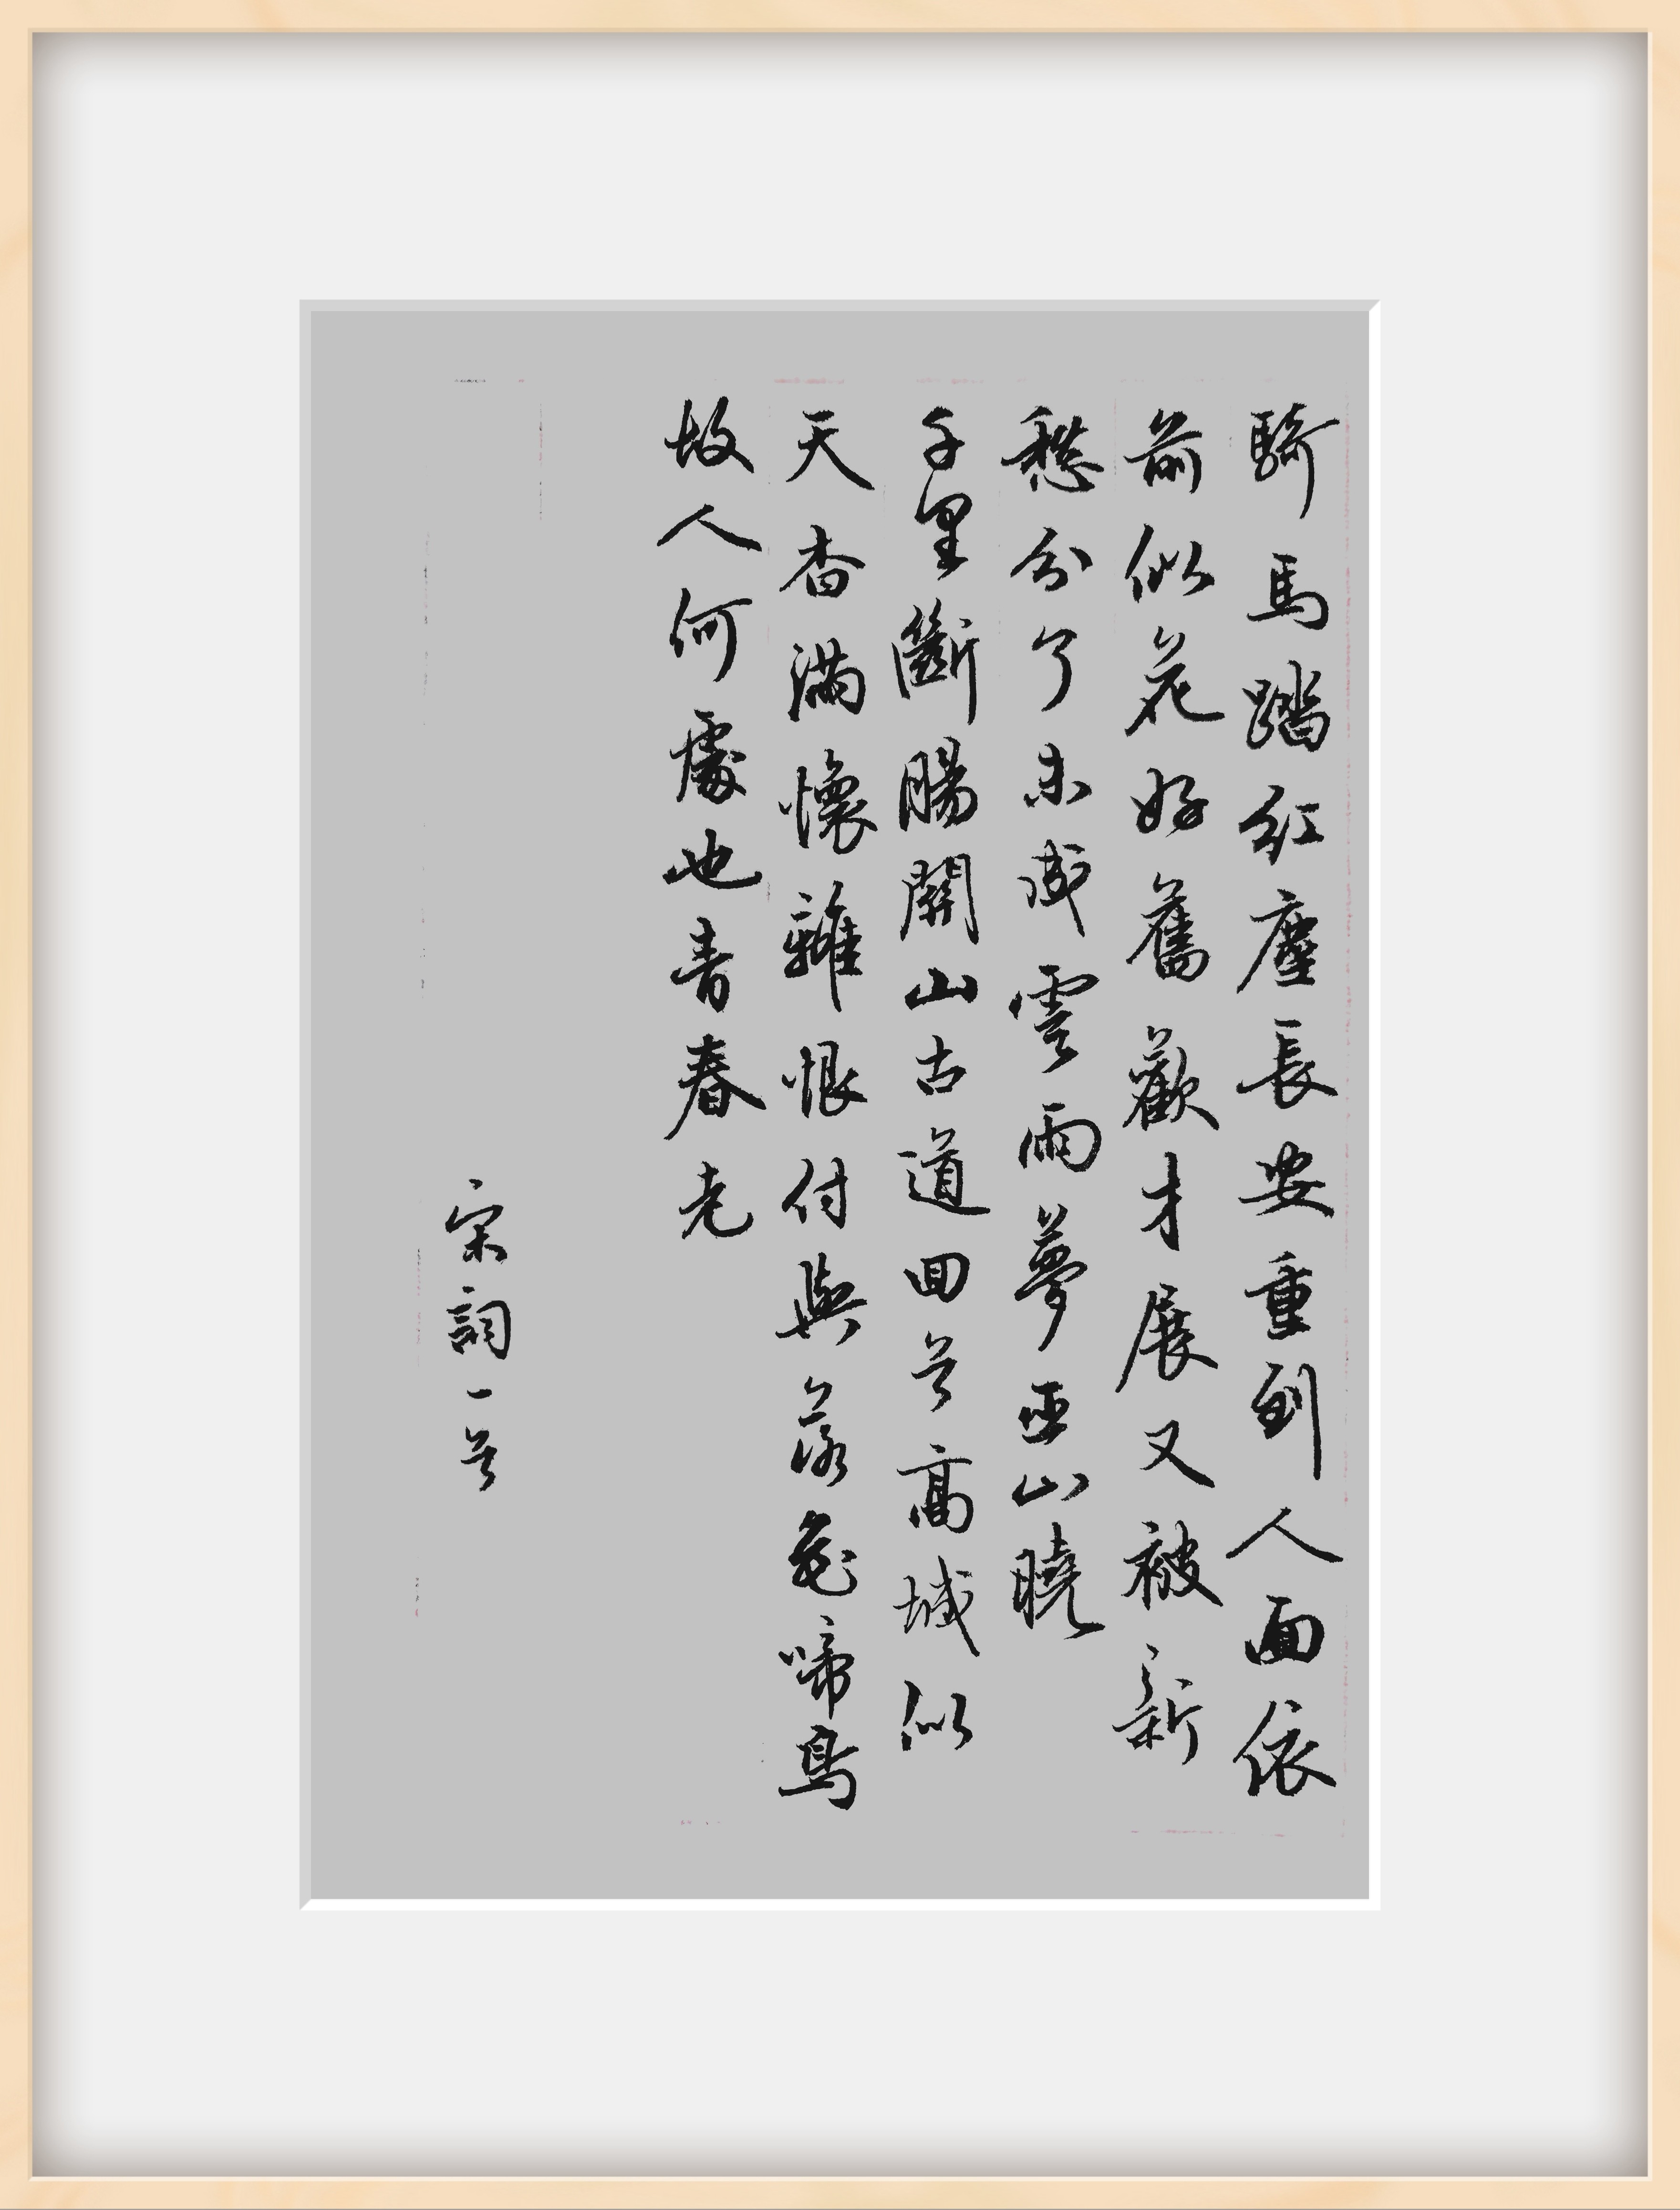 騎馬踏紅塵長安重到人面依
前似花好舊歡才展又被新
愁分了未成雲雨夢巫山曉
千里斷腸關山古道回首高城似
天杳滿懷離恨付與落花啼鳥
故人何處也青春老
宋詞一首